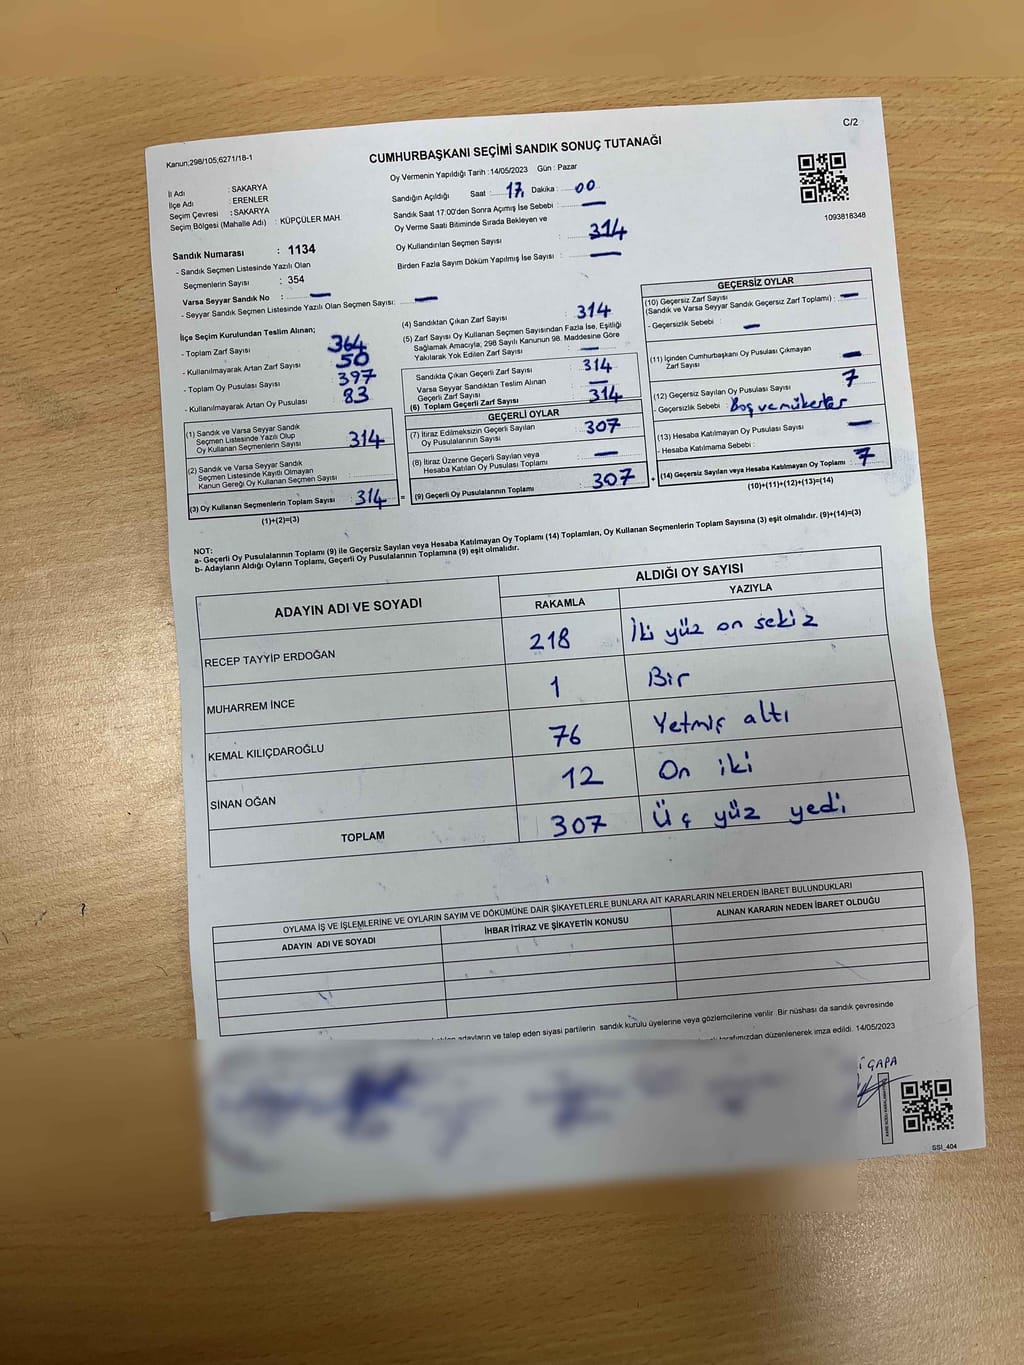 C/2
Kanun;298/105;6271/18-1
CUMHURBAŞKANI SEÇİMİ SANDIK SONUÇ TUTANAĞI
Oy Vermenin Yapıldığı Tarih :14/05/2023 Gün : Pazar
İl Adı : SAKARYA
İlçe Adı : ERENLER
Seçim Çevresi : SAKARYA
Seçim Bölgesi (Mahalle Adı) : KÜPÇÜLER MAH.
Sandığın Açıldığı Saat : 17, Dakika : 00
Sandık Saat 17:00'den Sonra Açımış İse Sebebi : —
Oy Verme Saati Bitiminde Sırada Bekleyen ve
Oy Kullandırılan Seçmen Sayısı : 314
Birden Fazla Sayım Döküm Yapılmış İse Sayısı : —
1093818348
Sandık Numarası : 1134
- Sandık Seçmen Listesinde Yazılı Olan
Seçmenlerin Sayısı : 354
Varsa Seyyar Sandık No : —
- Seyyar Sandık Seçmen Listesinde Yazılı Olan Seçmen Sayısı: —
İlçe Seçim Kurulundan Teslim Alınan;
- Toplam Zarf Sayısı : 364
- Kullanılmayarak Artan Zarf Sayısı : 50
- Toplam Oy Pusulası Sayısı : 397
- Kullanılmayarak Artan Oy Pusulası : 83
(1) Sandık ve Varsa Seyyar Sandık
Seçmen Listesinde Yazılı Olup
Oy Kullanan Seçmenlerin Sayısı : 314
(2) Sandık ve Varsa Seyyar Sandık
Seçmen Listesinde Kayıtlı Olmayan
Kanun Gereği Oy Kullanan Seçmen Sayısı :
(3) Oy Kullanan Seçmenlerin Toplam Sayısı : 314 =
(1)+(2)=(3)
(4) Sandıktan Çıkan Zarf Sayısı : 314
(5) Zarf Sayısı Oy Kullanan Seçmen Sayısından Fazla İse, Eşitliği
Sağlamak Amacıyla, 298 Sayılı Kanunun 98. Maddesine Göre
Yakılarak Yok Edilen Zarf Sayısı : —
Sandıkta Çıkan Geçerli Zarf Sayısı : 314
Varsa Seyyar Sandıktan Teslim Alınan
Geçerli Zarf Sayısı : —
(6) Toplam Geçerli Zarf Sayısı : 314
GEÇERLİ OYLAR
(7) İtiraz Edilmeksizin Geçerli Sayılan
Oy Pusulalarının Sayısı : 307
(8) İtiraz Üzerine Geçerli Sayılan veya
Hesaba Katılan Oy Pusulası Toplamı : —
(9) Geçerli Oy Pusulalarının Toplamı : 307 +
GEÇERSİZ OYLAR
(10) Geçersiz Zarf Sayısı
(Sandık ve Varsa Seyyar Sandık Geçersiz Zarf Toplamı) : —
- Geçersizlik Sebebi : —
(11) İçinden Cumhurbaşkanı Oy Pusulası Çıkmayan
Zarf Sayısı : —
(12) Geçersiz Sayılan Oy Pusulası Sayısı : 7
- Geçersizlik Sebebi : Boş ve mükerrer
(13) Hesaba Katılmayan Oy Pusulası Sayısı : —
- Hesaba Katılmama Sebebi :
(14) Geçersiz Sayılan veya Hesaba Katılmayan Oy Toplamı : 7
(10)+(11)+(12)+(13)=(14)
NOT:
a- Geçerli Oy Pusulalarının Toplamı (9) ile Geçersiz Sayılan veya Hesaba Katılmayan Oy Toplamı (14) Toplamları, Oy Kullanan Seçmenlerin Toplam Sayısına (3) eşit olmalıdır. (9)+(14)=(3)
b- Adayların Aldığı Oyların Toplamı, Geçerli Oy Pusulalarının Toplamına (9) eşit olmalıdır.
ADAYIN ADI VE SOYADI
ALDIĞI OY SAYISI
RAKAMLA YAZIYLA
RECEP TAYYİP ERDOĞAN 218 İki yüz on sekiz
MUHARREM İNCE 1 Bir
KEMAL KILIÇDAROĞLU 76 Yetmiş altı
SİNAN OĞAN 12 On iki
TOPLAM 307 Üç yüz yedi
OYLAMA İŞ VE İŞLEMLERİNE VE OYLARIN SAYIM VE DÖKÜMÜNE DAİR ŞİKAYETLERLE BUNLARA AİT KARARLARIN NELERDEN İBARET BULUNDUKLARI
ADAYIN ADI VE SOYADI İHBAR İTİRAZ VE ŞİKAYETİN KONUSU ALINAN KARARIN NEDEN İBARET OLDUĞU
adayların ve talep eden siyasi partilerin sandık kurulu üyelerine veya gözlemcilerine verilir. Bir nüshası da sandık çevresinde
tarafımızdan düzenlenerek imza edildi. 14/05/2023
ÇAPA
SSI_404